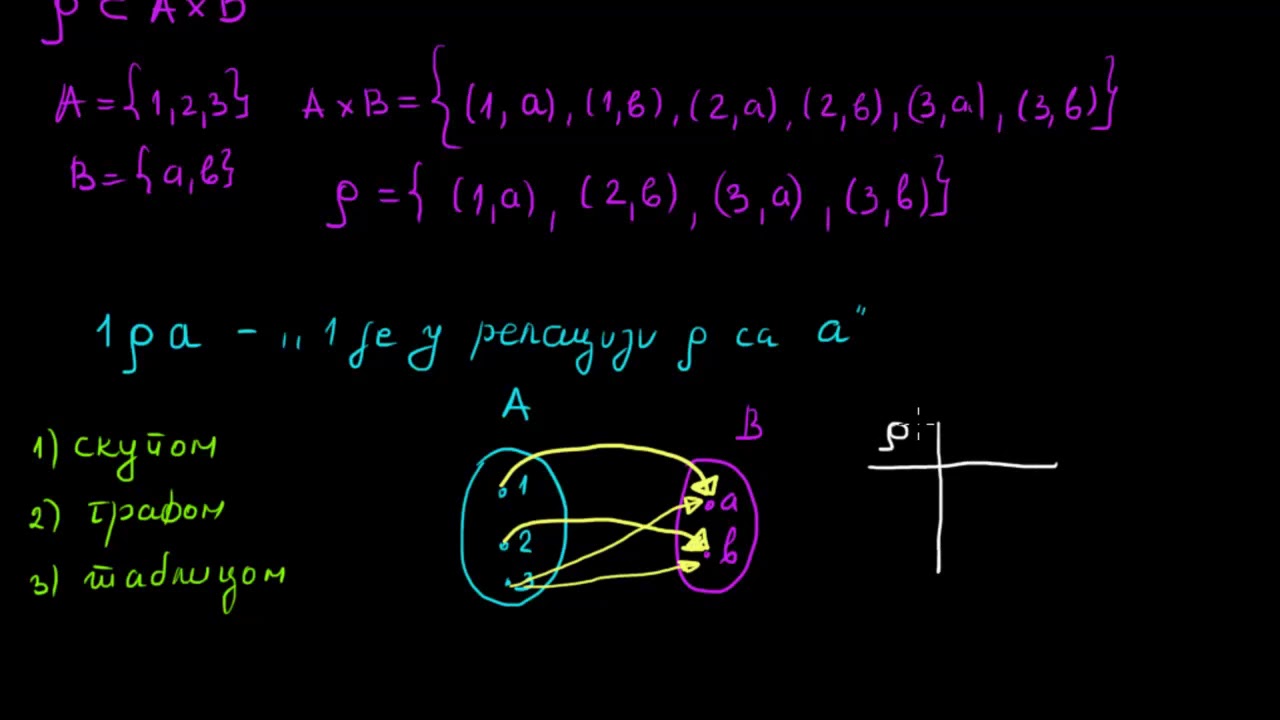 ρ ⊂ A × B
A = {1,2,3} A × B = {(1, a), (1, в), (2, a), (2, в), (3, a), (3, в)}
B = {a, в} ρ = { (1, a), (2, в), (3, a), (3, в)}
1 ρ a - „ 1 је у релацији ρ са a"
1) скупом
2) графом
3) таблицом
A
B
1
2
3
a
в
ρ